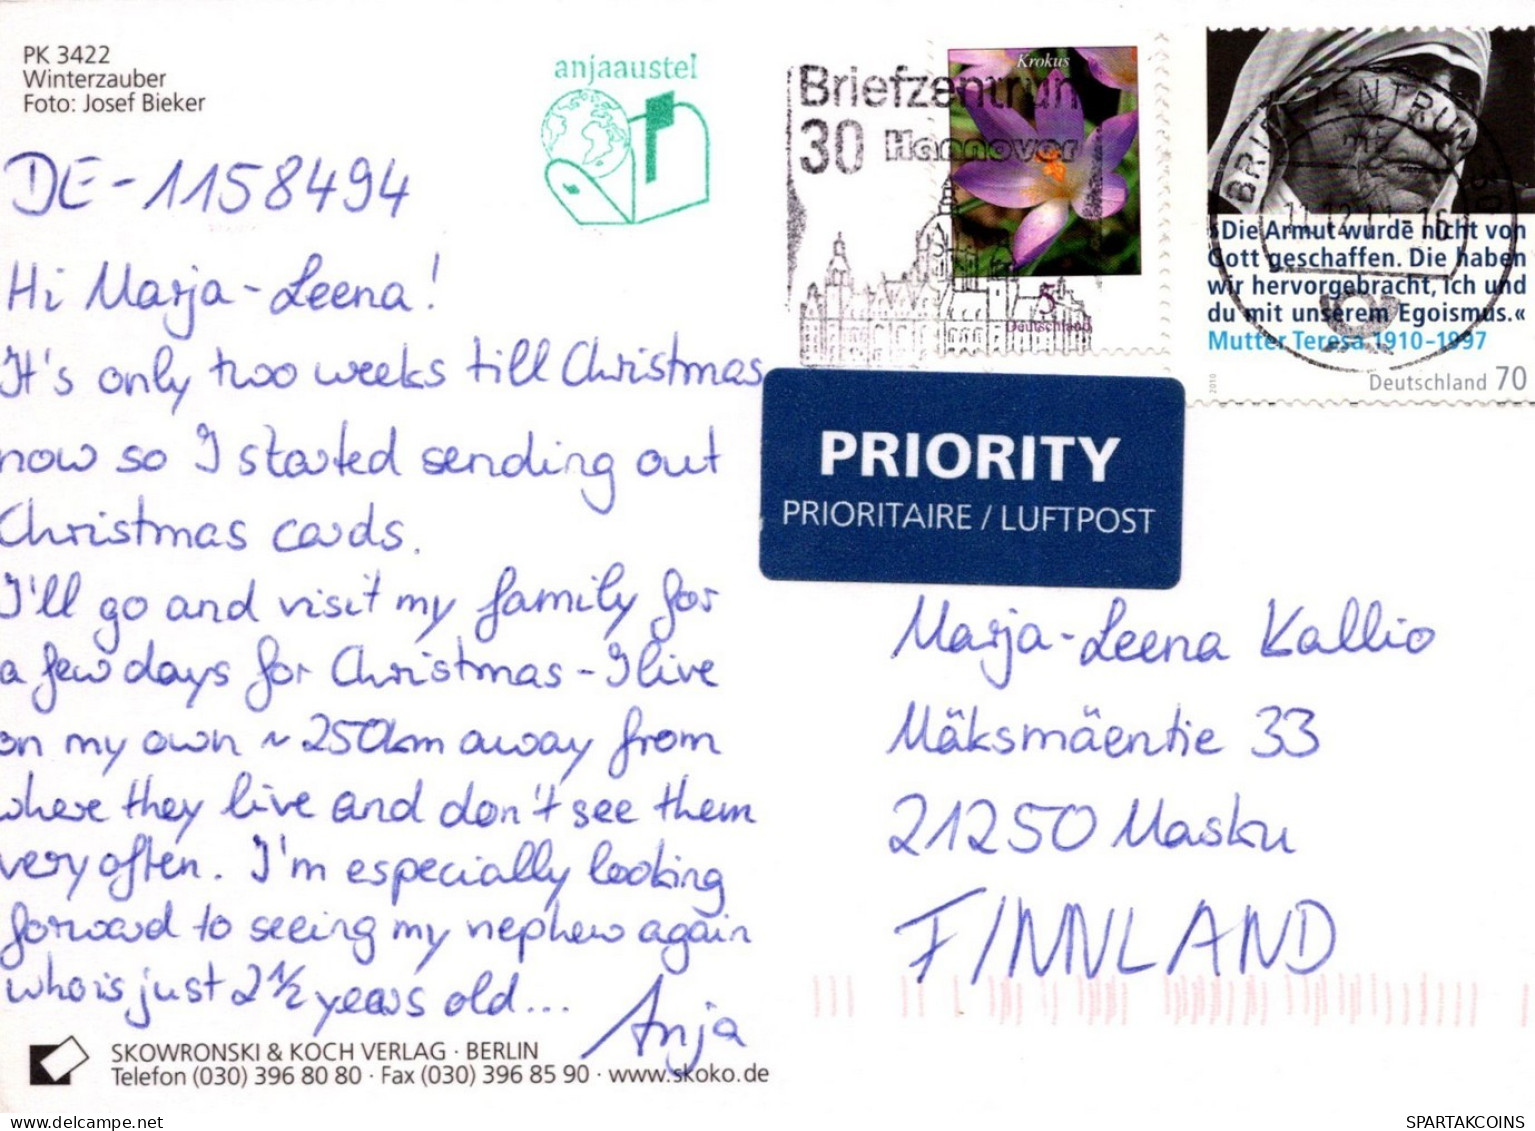 PK 3422
Winterzauber
Foto: Josef Bieker
anjaaustel
DE-1158494
Hi Marja-Leena!
It's only two weeks till Christmas
now so I started sending out
Christmas cards.
I'll go and visit my family for
a few days for Christmas - I live
on my own ~ 250km away from
where they live and don't see them
very often. I'm especially looking
forward to seeing my nephew again
who is just 2 1/2 years old...
Anja
SKOWRONSKI & KOCH VERLAG · BERLIN
Telefon (030) 396 80 80 · Fax (030) 396 85 90 · www.skoko.de
Briefzentrum
30 Hannover
Krokus
5
Deutschland
BRIEFZENTRUM 30
»Die Armut wurde nicht von
Gott geschaffen. Die haben
wir hervorgebracht, ich und
du mit unserem Egoismus.«
Mutter Teresa 1910–1997
2010
Deutschland 70
PRIORITY
PRIORITAIRE / LUFTPOST
Marja-Leena Kallio
Mäksmäentie 33
21250 Masku
FINNLAND
SPARTAKCOINS
www.delcampe.net